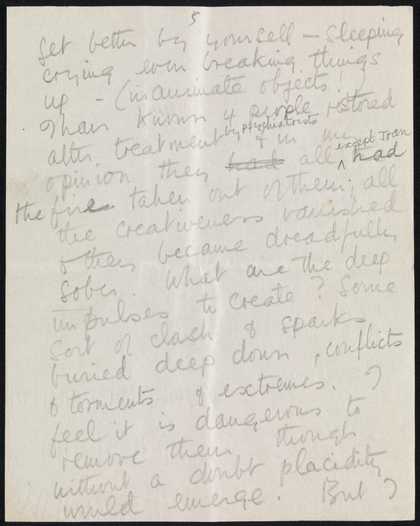 5
get better by yourself – sleeping
crying even breaking things
up – (inanimate objects!)
I have known 4 people restored
after treatment by psychiatrists & in my
opinion they had all ^ except Joan had
the fire taken out of them, all
the creativeness vanished
& they became dreadfully
sober. What are the deep
impulses to create? Some
sort of clash & sparks
buried deep down, conflicts
& torments & extremes. I
feel it is dangerous to
remove them though
without a doubt placidity
would emerge. But I